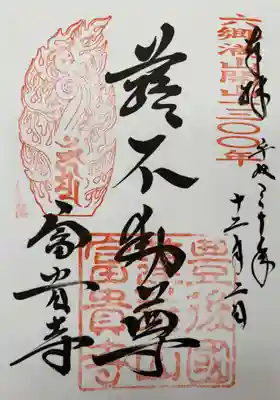 奉拝
平成三十年
十二月二日
六郷満山開山一三〇〇年
蕗不動尊
富貴寺
豊後國
蓮華山
富貴寺